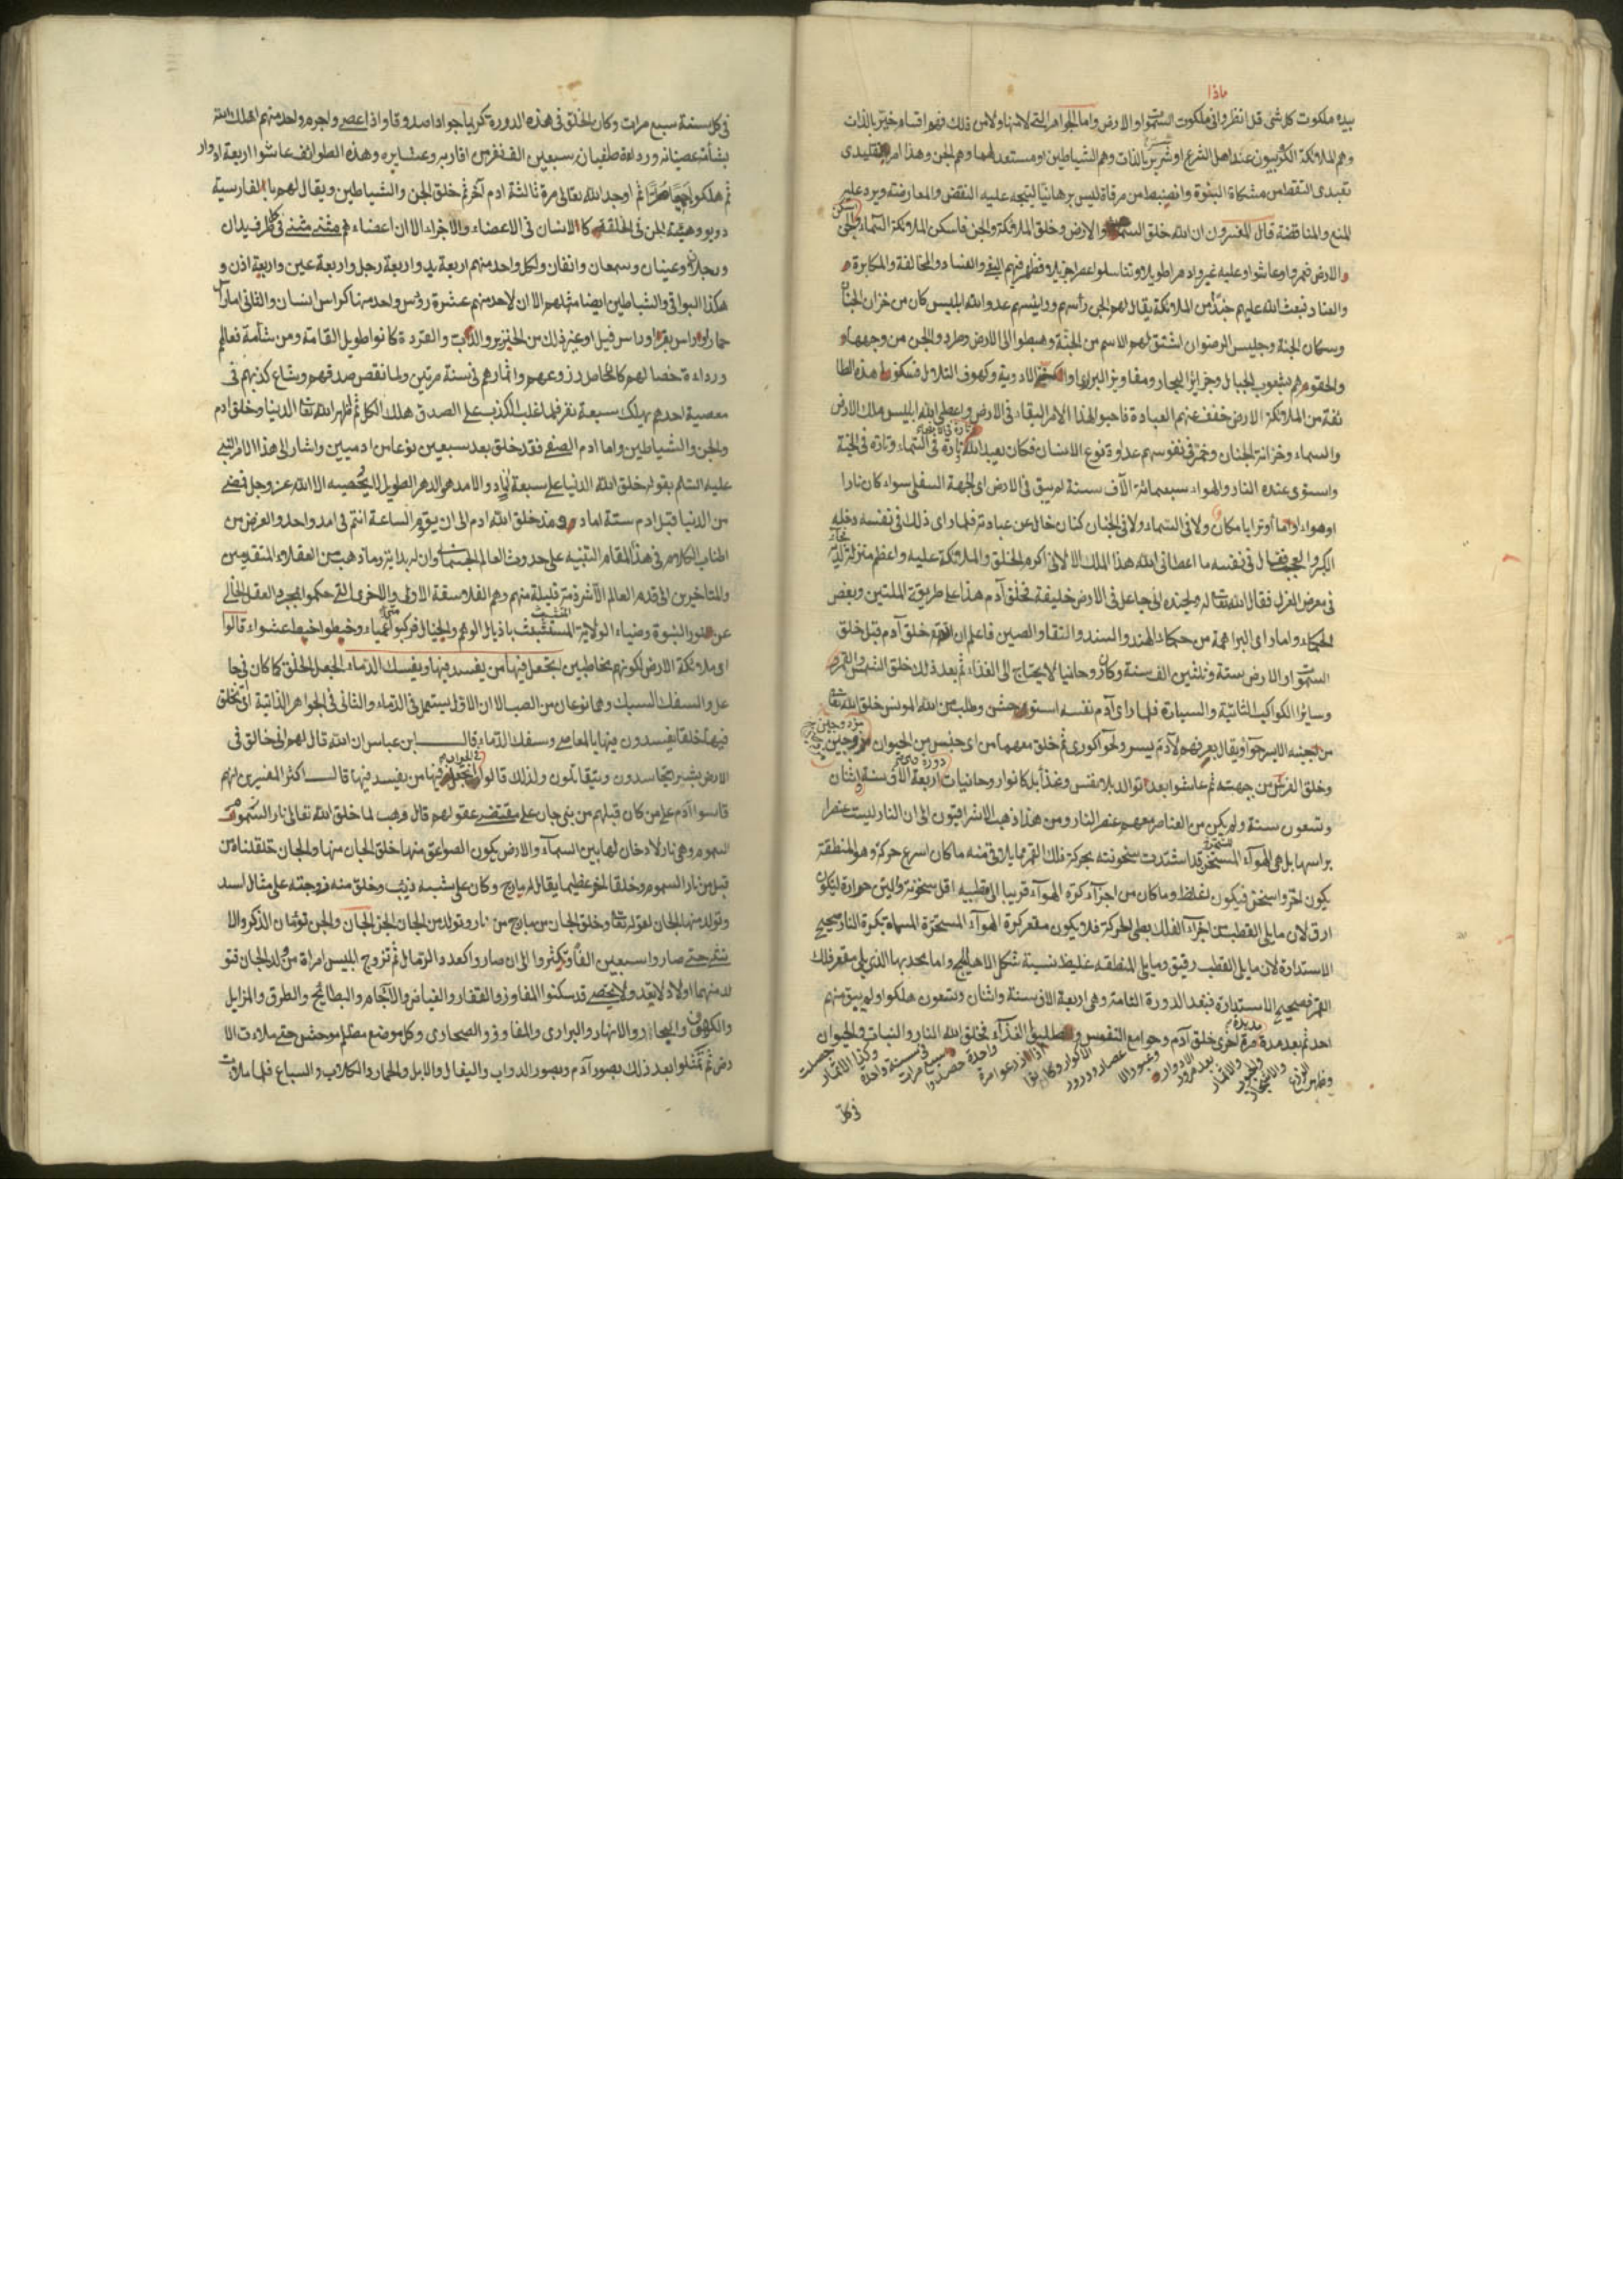 ماذا
بيده ملكوت كل شى قل انظروا فى ملكوت السموات والارض واما الجواهر التى لا منها ولا من ذلك فهو اقسام خير بالذات
وهم الملائكة الكروبيون عند اهل الشرع او شرير بالذات وهم الشياطين او مستعد لهما وهم الجن وهذا امر تقليدى
تعبدى التقط من مشكاة النبوة وانضبط من مرقاة ليس برهانيا ليتجه عليه النقض والمعارضة ويرد عليه
المنع والمناقضة قال المفسرون ان الله خلق السماء والارض وخلق الملائكة والجن فاسكن الملائكة السماء والجن
والارض فعاشوا وعليه غبروا دهرا طويلا وتناسلوا عصرا جزيلا وظهر فيهم البغى والفساد والمخالفة والمكابرة
والعناد فبعث الله عليهم جندا من الملائكة يقال لهم الجن رأسهم ورئيسهم عدو الله ابليس كان من خزان الجنان
وسكان الجنة وجليس الرضوان اشتق لهم الاسم من الجنة وهبطوا الى الارض وطرد والجن من وجهها و
والحقوهم بشعوب الجبال وجزاير البحار ومفاويز البرارى والاودية وكهوف التلال فسكنوا هذه الطا
ئفة من الملائكة الارض خفف عنهم العبادة فاحبوا لهذا الامر البقاء فى الارض واعطى الله ابليس ملك الارض
والسماء وخزانة الجنان وخمر فى نفوسهم عداوة نوع الانسان فكان يعبد الله تارة فى السماء وتارة فى الجنة
واستوى عنده النار والهواء سبعمائة الآف سنة لم يبق فى الارض اى الجهة السفلى سواء كان نارا
او هواء او ماء او ترابا مكان ولا فى السماء ولا فى الجنان كنان خال عن عبادته فلما راى ذلك فى نفسه دخله
الكبر والعجب فقال فى نفسه ما اعطانى الله هذا الملك الا لانى اكرم الخلق والملائكة عليه واعظم منزلة لديه
فى معرض العزل فقال الله تعالى له ولجنده انى جاعل فى الارض خليفة فخلق آدم هذا على طريقة المليين وبعض
الحكماء واما راى البراهمة من حكماء الهند والسند والصين فاعلم ان الله خلق آدم قبل خلق
السموات والارض بستة وثلثين الف سنة وكان روحانيا لا يحتاج الى الغذاء ثم بعد ذلك خلق الشمس والقمر و
وسائر الكواكب الثابتة والسيارة فلما راى آدم نفسه استوحش وطلب من الله المونس خلق الله تعالى
من جنبه الايسر حوا ثم خلق معهما من اى جنس من الحيوان زوجين
وخلق الفرش من جهته ثم عاشوا بعد التوالد بلا نفس وغذاء بل كانوا روحانيات اربعة الاف سنة واثنان
وتسعون سنة ولم يكن من العناصر معهم عنصر النار ومن هذا ذهب الاشراقيون الى ان النار ليست عنصرا
براسها بل هى الهواء المسخن قد اشتدت سخونته بحركة فلك القمر فما يلاقى منه ما كان اسرع حركة وهو المنطقة
يكون احر واسخن فيكون اغلظ وما كان من اجزاء كرة الهواء قريبا الى قطبيه اقل سخونة والين حرارة ليكون
ارق لان ما يلى القطب من اجزاء الفلك بطى الحركة فلا يكون مقعر كرة الهواء المسخنة المسماة بكرة النار صحيح
الاستدارة لان ما يلى القطب رقيق وما يلى المنطقة غليظ نسبة شكل الاهليلجى واما محدبها الذى يلى مقعر فلك
القمر فصحيح الاستدارة فبعد الدورة الثامنة وهى اربعة الاف سنة واثنان وتسعون هلكوا ولم يبق منهم
احد ثم بعد مدة مديدة مرة اخرى خلق آدم وجوامع النفوس فخلق الله النار والنبات والحيوان
فى كل
فى كل سنة سبع مرات وكان الخلق فى هذه الدورة كريما جوادا صدوقا واذا عصى واجرم واحد منهم اهلك الله
بشأمة عصيانه ورداءة طغيانه سبعين الف نفر من اقاربه وعشايره وهذه الطوائف عاشوا اربعة ادوار
ثم هلكوا جميعا ثم اوجد الله تعالى مرة ثالثة ادم آخر ثم خلق الجن والشياطين ويقال لهم بالفارسية
ديو وهيئة الجن فى الخلقة كالانسان فى الاعضاء والاجزاء الا ان اعضاءهم مثنى مثنى فى كل طرف يدان
ورجلان وعينان وسمعان وانفان ولكل واحد منهم اربعة يد واربعة رجل واربعة عين واربعة اذن و
هكذا البواقى والشياطين ايضا مثلهم الا ان لاحد منهم عشرة رؤس واحد منها كراس انسان والثانى اما راس
حمار او راس بقر او راس فيل او غير ذلك من الخنزير والذئب والقردة كانوا طويل القامة ومن شأمة فعالهم
ورداءة خصالهم كان حاصل زروعهم واثمارهم فى سنة مرتين ولما نقص صدقهم وشاع كذبهم فى
معصية احدهم يهلك سبعة نفر فلما غلب الكذب على الصدق هلك الكل ثم طهر الله تعالى الدنيا وخلق ادم
والجن والشياطين واما ادم الصفى فقد خلق بعد سبعين نوعا من ادميين واشار الى هذا الامر النبى
عليه السلم بقوله خلق الله الدنيا على سبعة آماد والامد هو الدهر الطويل لا يحصيه الا الله عز وجل فمضى
من الدنيا قبل ادم ستة اماد ومنذ خلق الله ادم الى ان يقوم الساعة انتم فى امد واحد والغرض من
اطناب الكلام فى هذا المقام التنبيه على حدوث العالم الجسمانى وان له بداية وما ذهب من العقلاء المتقدمين
والمتاخرين الى قدم العالم الا شرذمة قليلة منهم وهم الفلاسفة الاولى والاخرى التى حكموا بمجرد العقل الخالى
عن نور النبوة وضياء الولاية المستتبعة باذيال الوهم والخيال فركبوا عمياء وخبطوا خبط عشواء قالوا
اى ملائكة الارض لكونهم مخاطبين اتجعل فيها من يفسد فيها ويسفك الدماء الجعل الخلق كما كان فى جا
عل والسفك السبك وهما نوعان من الصب الا ان الاول يستعمل فى الدماء والثانى فى الجواهر الذائبة اى اتخلق
فيها خلقا يفسدون فيها بالمعاصى وسفك الدماء قال ابن عباس ان الله قال لهم انى خالق فى
الارض بشرا يتحاسدون ويتقاتلون ولذلك قالوا اتجعل فيها من يفسد فيها قال اكثر المفسرين انهم
قاسوا آدم على من كان قبلهم من بنى جان على مقتضى عقولهم قال وهب لما خلق الله تعالى نار السموم
السموم وهى نار لا دخان لها بين السماء والارض يكون الصواعق منها خلق الجان منها والجان خلقناه من
قبل من نار السموم وخلق خلقا عظيما يقال له مارج وكان على شبه ذيب وخلق منه زوجته على مثال اسد
وتولد منهما الجان لقوله تعالى وخلق الجان من مارج من نار وتولد من الجان الجن والجن توءمان الذكر والا
نثى حتى صاروا سبعين الفا وتكثروا الى ان صاروا كعدد الرمال ثم تزوج ابليس امراة من ولد الجان فتو
لد منهما اولاد لا يعد ولا يحصى قد سكنوا المفاوز والقفار والغياض والآجام والبطايح والطرق والمزابل
والكهوف والبحار والانهار والبرارى والمفاوز والصحارى وكل موضع مظلم موحش حتى ملاءت الا
رض ثم تمثلوا بعد ذلك بصور آدم وبصور الدواب والبغال والابل والحمار والكلاب والسباع فلما ملات